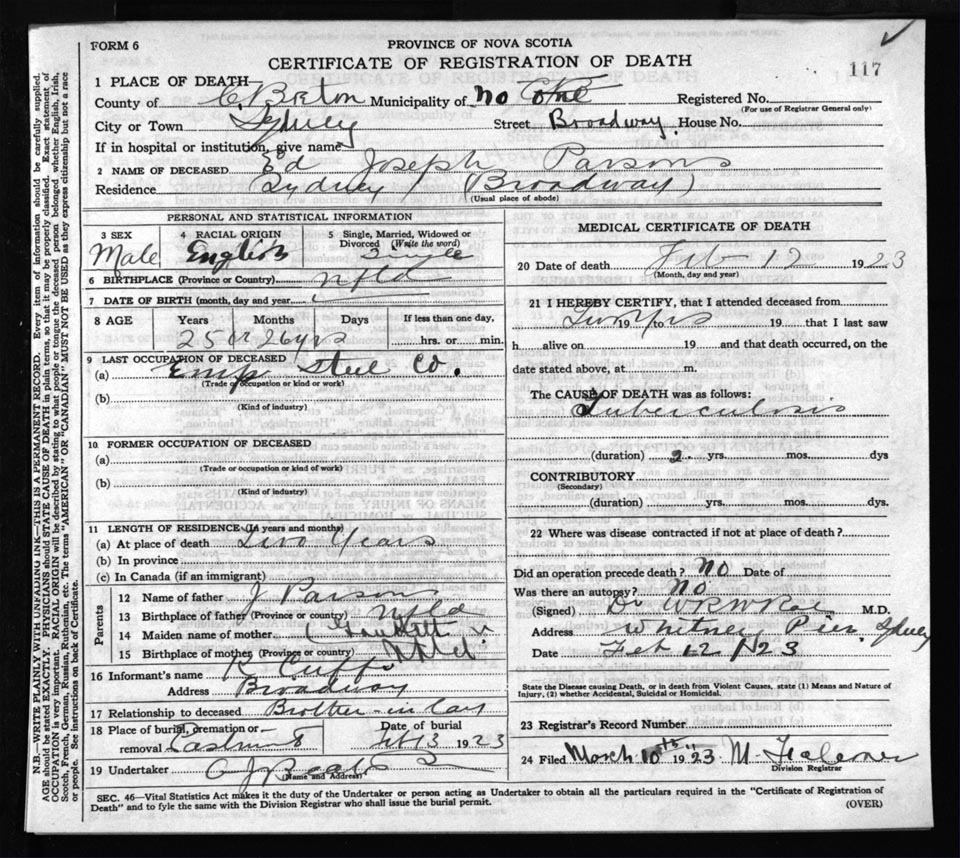 FORM 6
PROVINCE OF NOVA SCOTIA
CERTIFICATE OF REGISTRATION OF DEATH
117
1 PLACE OF DEATH—
County of C. Breton Municipality of No
Registered No.
(For use of Registrar General only)
City or Town Sydney Street Broadway. House No.
If in hospital or institution, give name
2 NAME OF DECEASED Ed Joseph Parsons
Residence Sydney (Broadway)
(Usual place of abode)
PERSONAL AND STATISTICAL INFORMATION
3 SEX
Male
4 RACIAL ORIGIN
English
5 Single, Married, Widowed or Divorced (Write the word)
Single
6 BIRTHPLACE (Province or Country) Nfld
7 DATE OF BIRTH (month, day and year)
8 AGE Years Months Days If less than one day,
25 or 26 yrs hrs. or min.
9 LAST OCCUPATION OF DECEASED
(a) Emp Steel Co.
(Trade or occupation or kind of work)
(b)
(Kind of industry)
10 FORMER OCCUPATION OF DECEASED
(a)
(Trade or occupation or kind of work)
(b)
(Kind of industry)
11 LENGTH OF RESIDENCE (In years and months)
(a) At place of death Two Years
(b) In province
(c) In Canada (if an immigrant)
Parents
12 Name of father J Parsons
13 Birthplace of father (Province or country) Nfld
14 Maiden name of mother
15 Birthplace of mother (Province or country) Nfld
16 Informant's name R Cuff
Address Broadway
17 Relationship to deceased Brother-in law
18 Place of burial, cremation or removal
Date of burial
Feb 13 1923
19 Undertaker
(Name and Address)
MEDICAL CERTIFICATE OF DEATH
20 Date of death Feb 12 1923
(Month, day and year)
21 I HEREBY CERTIFY, that I attended deceased from
Two yrs 19 to 19 that I last saw
h alive on 19 and that death occurred, on the
date stated above, at m.
The CAUSE OF DEATH was as follows:
Tuberculosis
(duration) 2 yrs. mos. dys
CONTRIBUTORY
(Secondary)
(duration) yrs. mos. dys.
22 Where was disease contracted if not at place of death?
Did an operation precede death? No Date of
Was there an autopsy? No
(Signed) Dr M.D.
Address Whitney Pier, Sydney
Date Feb 12 1923
State the Disease causing Death, or in death from Violent Causes, state (1) Means and Nature of
Injury, (2) whether Accidental, Suicidal or Homicidal.
23 Registrar's Record Number
24 Filed March 10th 1923 M.
Division Registrar
SEC. 46—Vital Statistics Act makes it the duty of the Undertaker or person acting as Undertaker to obtain all the particulars required in the "Certificate of Registration of
Death" and to fyle the same with the Division Registrar who shall issue the burial permit.
(OVER)
N.B.—WRITE PLAINLY WITH UNFADING INK—THIS IS A PERMANENT RECORD. Every item of information should be carefully supplied.
AGE should be stated EXACTLY. PHYSICIANS should STATE CAUSE OF DEATH in plain terms, so that it may be properly classified. Exact statement of
OCCUPATION is very important. RACIAL ORIGIN will be described by stating to what people or tongue the deceased person belonged whether English, Irish,
Scotch, French, German, Russian, Ruthenian, etc. The terms "AMERICAN" or "CANADIAN" MUST NOT BE USED as they express citizenship but not a race
or people. See instructions on back of Certificate.